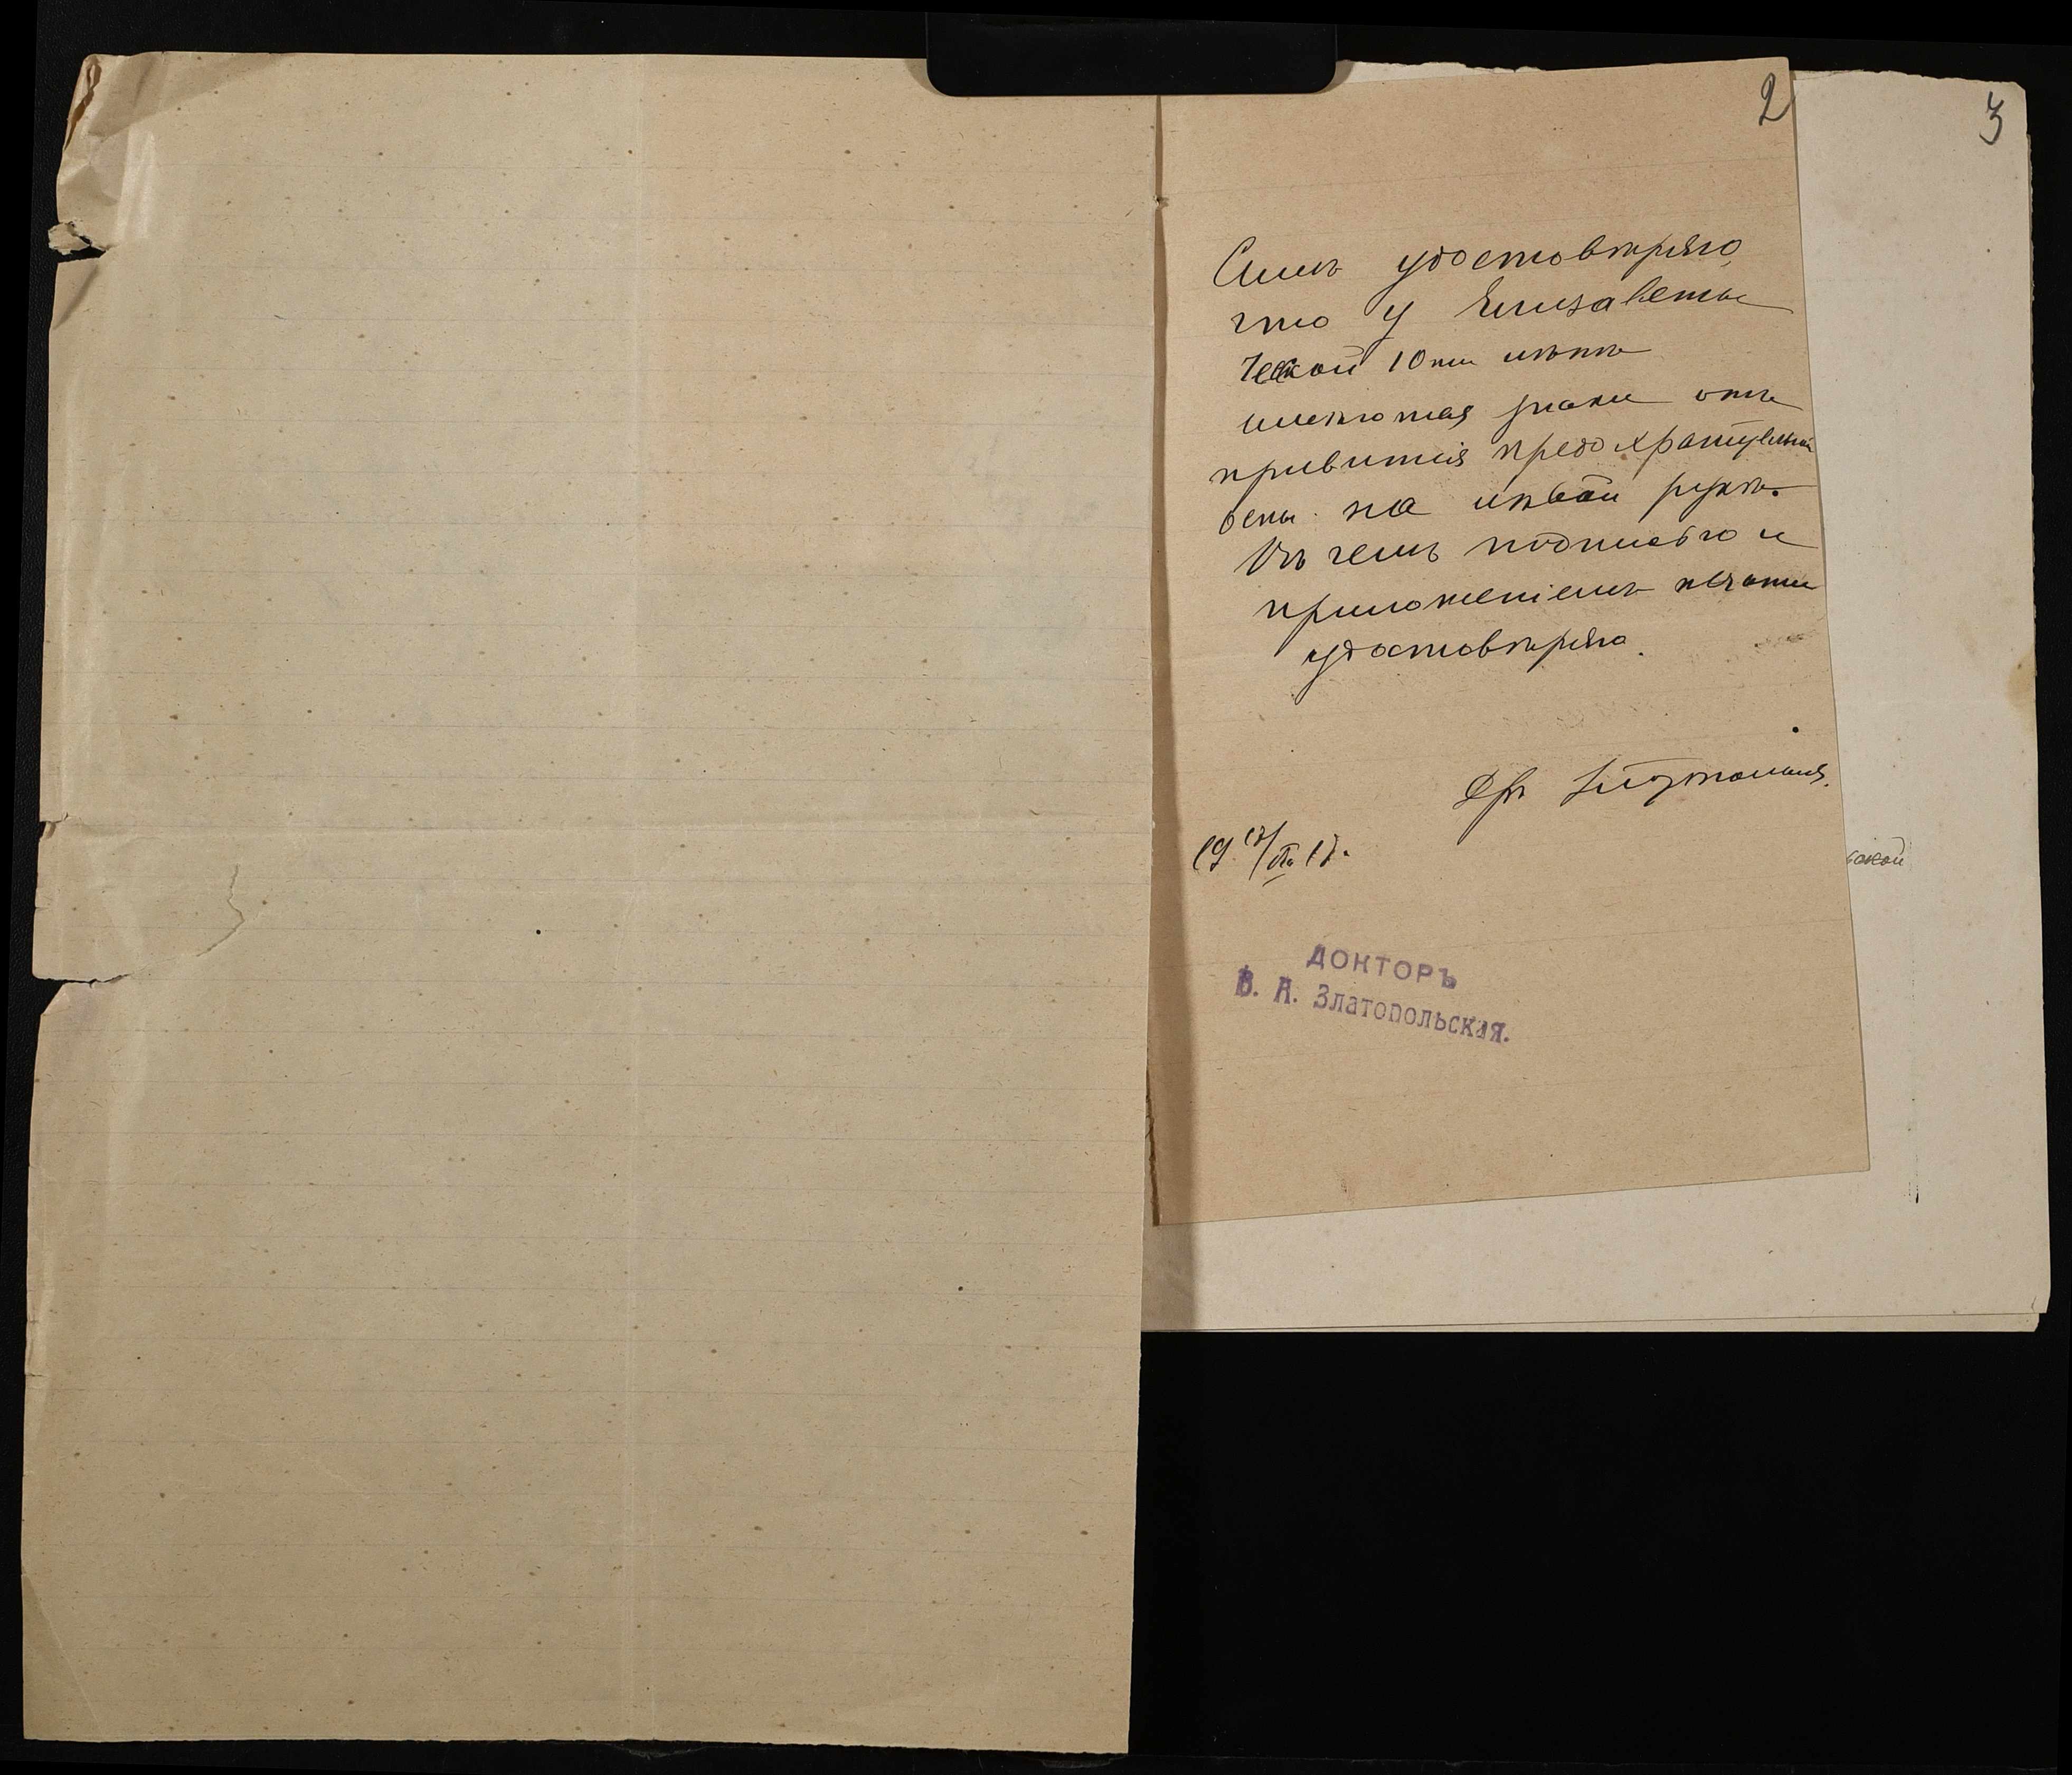 2
3
Симъ удостовѣряю,
что у Елизаветы
Ческой 10ти лѣтъ
имеются знаки отъ
привитія предохранительной
оспы на лѣвой рукѣ.
Въ чемъ подписью и
приложеніемъ печати
удостовѣряю.
Др
19 17/ 17.
ской
ДОКТОРЪ
В. А. Златопольская.